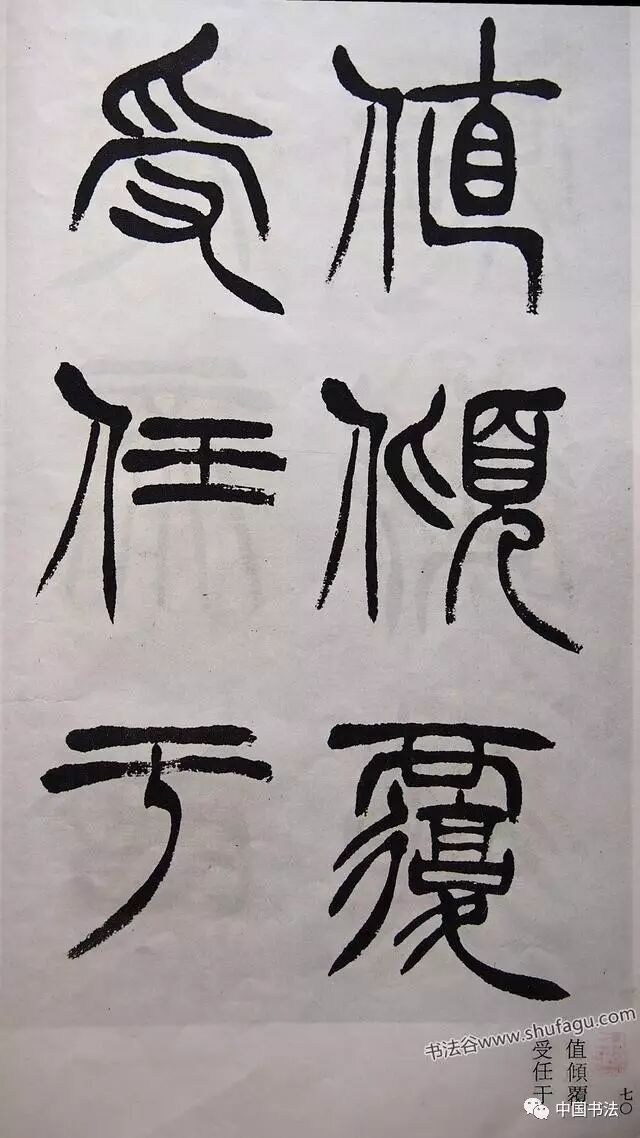 值傾覆
受任于
书法谷www.shufagu.com
值傾覆
受任于
七〇
中国书法